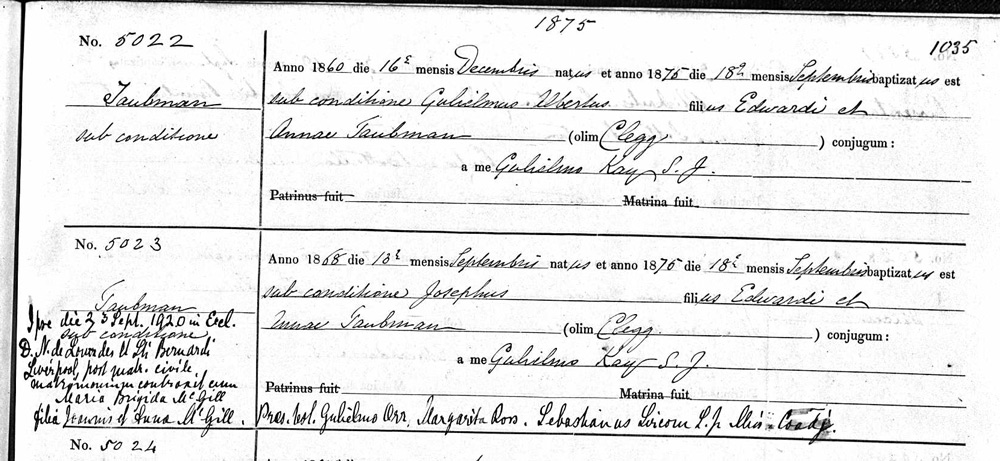 1875
1035
No. 5022
Taubman
sub conditione
Anno 1860 die 16ᵃ mensis Decembris natus et anno 1875 die 18ᵃ mensis Septembris baptizatus est
sub conditione Gulielmus Albertus filius Edwardi et
Annae Taubman (olim Clegg) conjugum:
a me Gulielmo Kay S. J.
Patrinus fuit Matrina fuit
No. 5023
Taubman
sub conditione
Anno 1868 die 13ᵃ mensis Septembris natus et anno 1875 die 18ᵃ mensis Septembris baptizatus est
sub conditione Josephus filius Edwardi et
Annae Taubman (olim Clegg) conjugum:
a me Gulielmo Kay S. J.
Patrinus fuit Matrina fuit
die 23 Sept. 1920 in Eccl.
D. N. de Lourdes et Sti Bernardi
Liverpool, post matr. civile
matrimonium contraxit cum
Maria Brigida McGill
filia Joannis et Anna McGill. Pres. test. Gulielmo Orr, Margarita Ross. Sebastianus
No. 5024